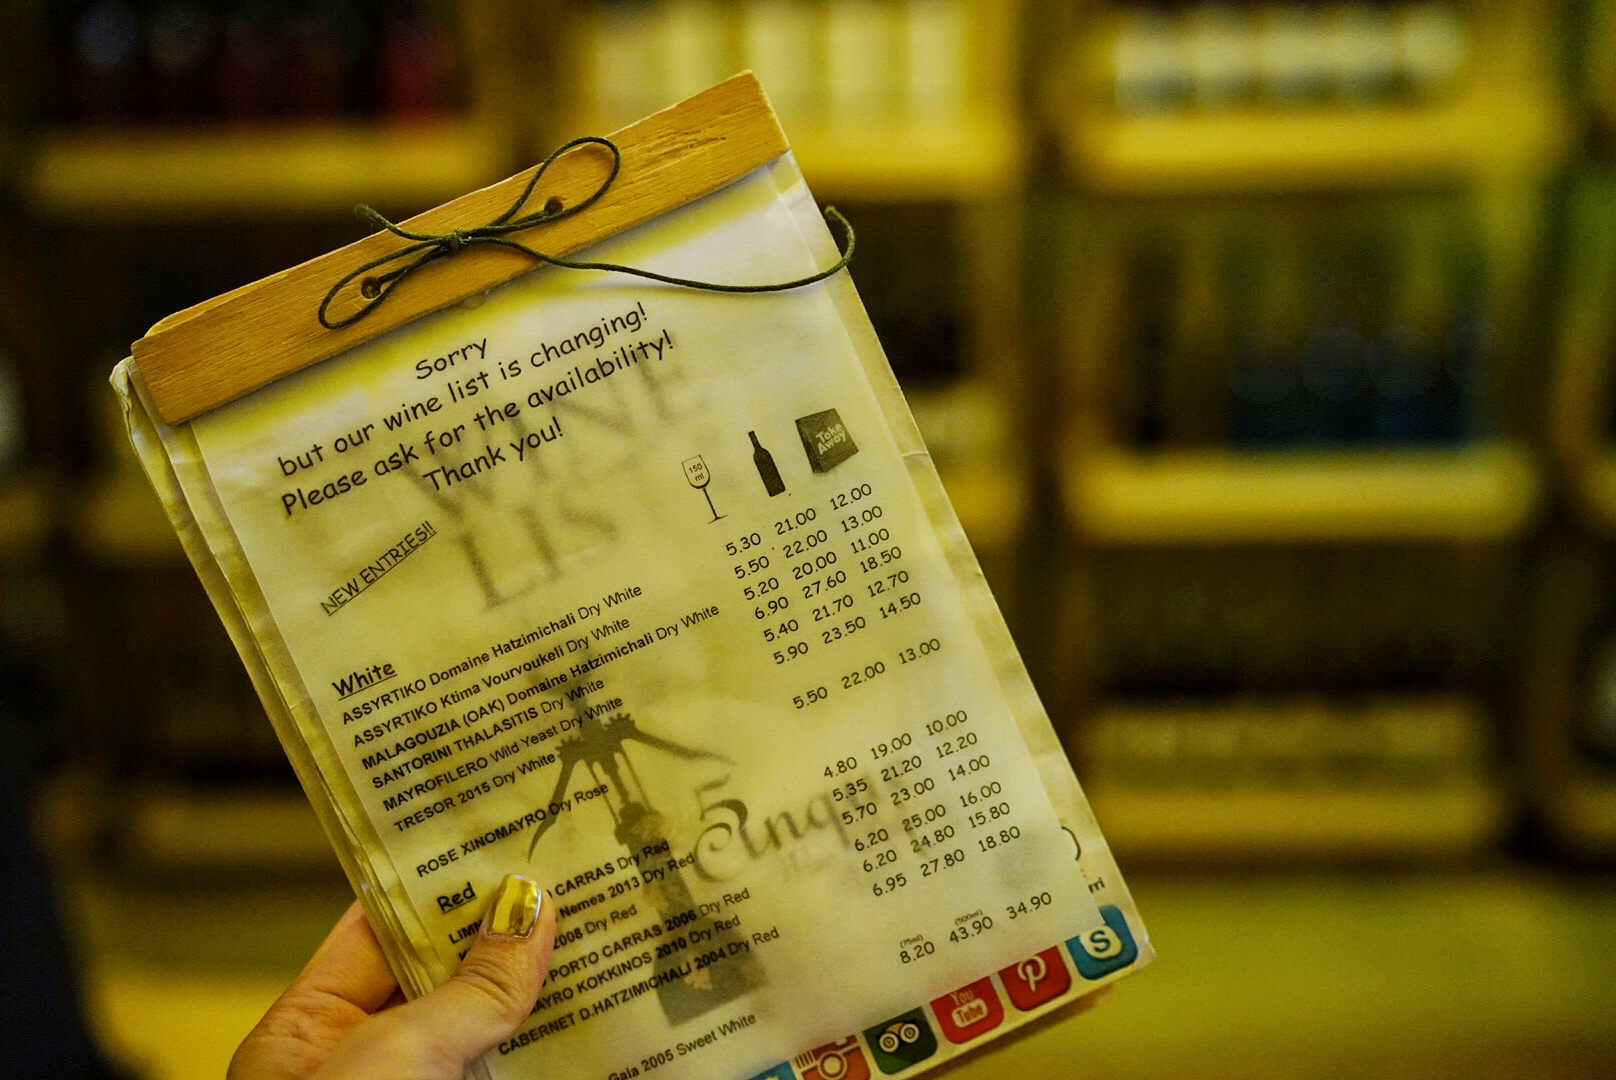 Sorry
but our wine list is changing!
Please ask for the availability!
Thank you!
WINE
LIST
NEW ENTRIES!!
150 ml
Take Away
White
ASSYRTIKO Domaine Hatzimichali Dry White 5.30 21.00 12.00
ASSYRTIKO Ktima Vourvoukeli Dry White 5.50 22.00 13.00
MALAGOUZIA (OAK) Domaine Hatzimichali Dry White 5.20 20.00 11.00
SANTORINI THALASITIS Dry White 6.90 27.60 18.50
MAYROFILERO Wild Yeast Dry White 5.40 21.70 12.70
TRESOR 2015 Dry White 5.90 23.50 14.50
ROSE XINOMAYRO Dry Rose 5.50 22.00 13.00
Red
CARRAS Dry Red 4.80 19.00 10.00
Nemea 2013 Dry Red 5.35 21.20 12.20
2008 Dry Red 5.70 23.00 14.00
PORTO CARRAS 2006 Dry Red 6.20 25.00 16.00
KOKKINOS 2010 Dry Red 6.20 24.80 15.80
CABERNET D.HATZIMICHALI 2004 Dry Red 6.95 27.80 18.80
(75ml) (500ml)
Gaia 2005 Sweet White 8.20 43.90 34.90
You Tube